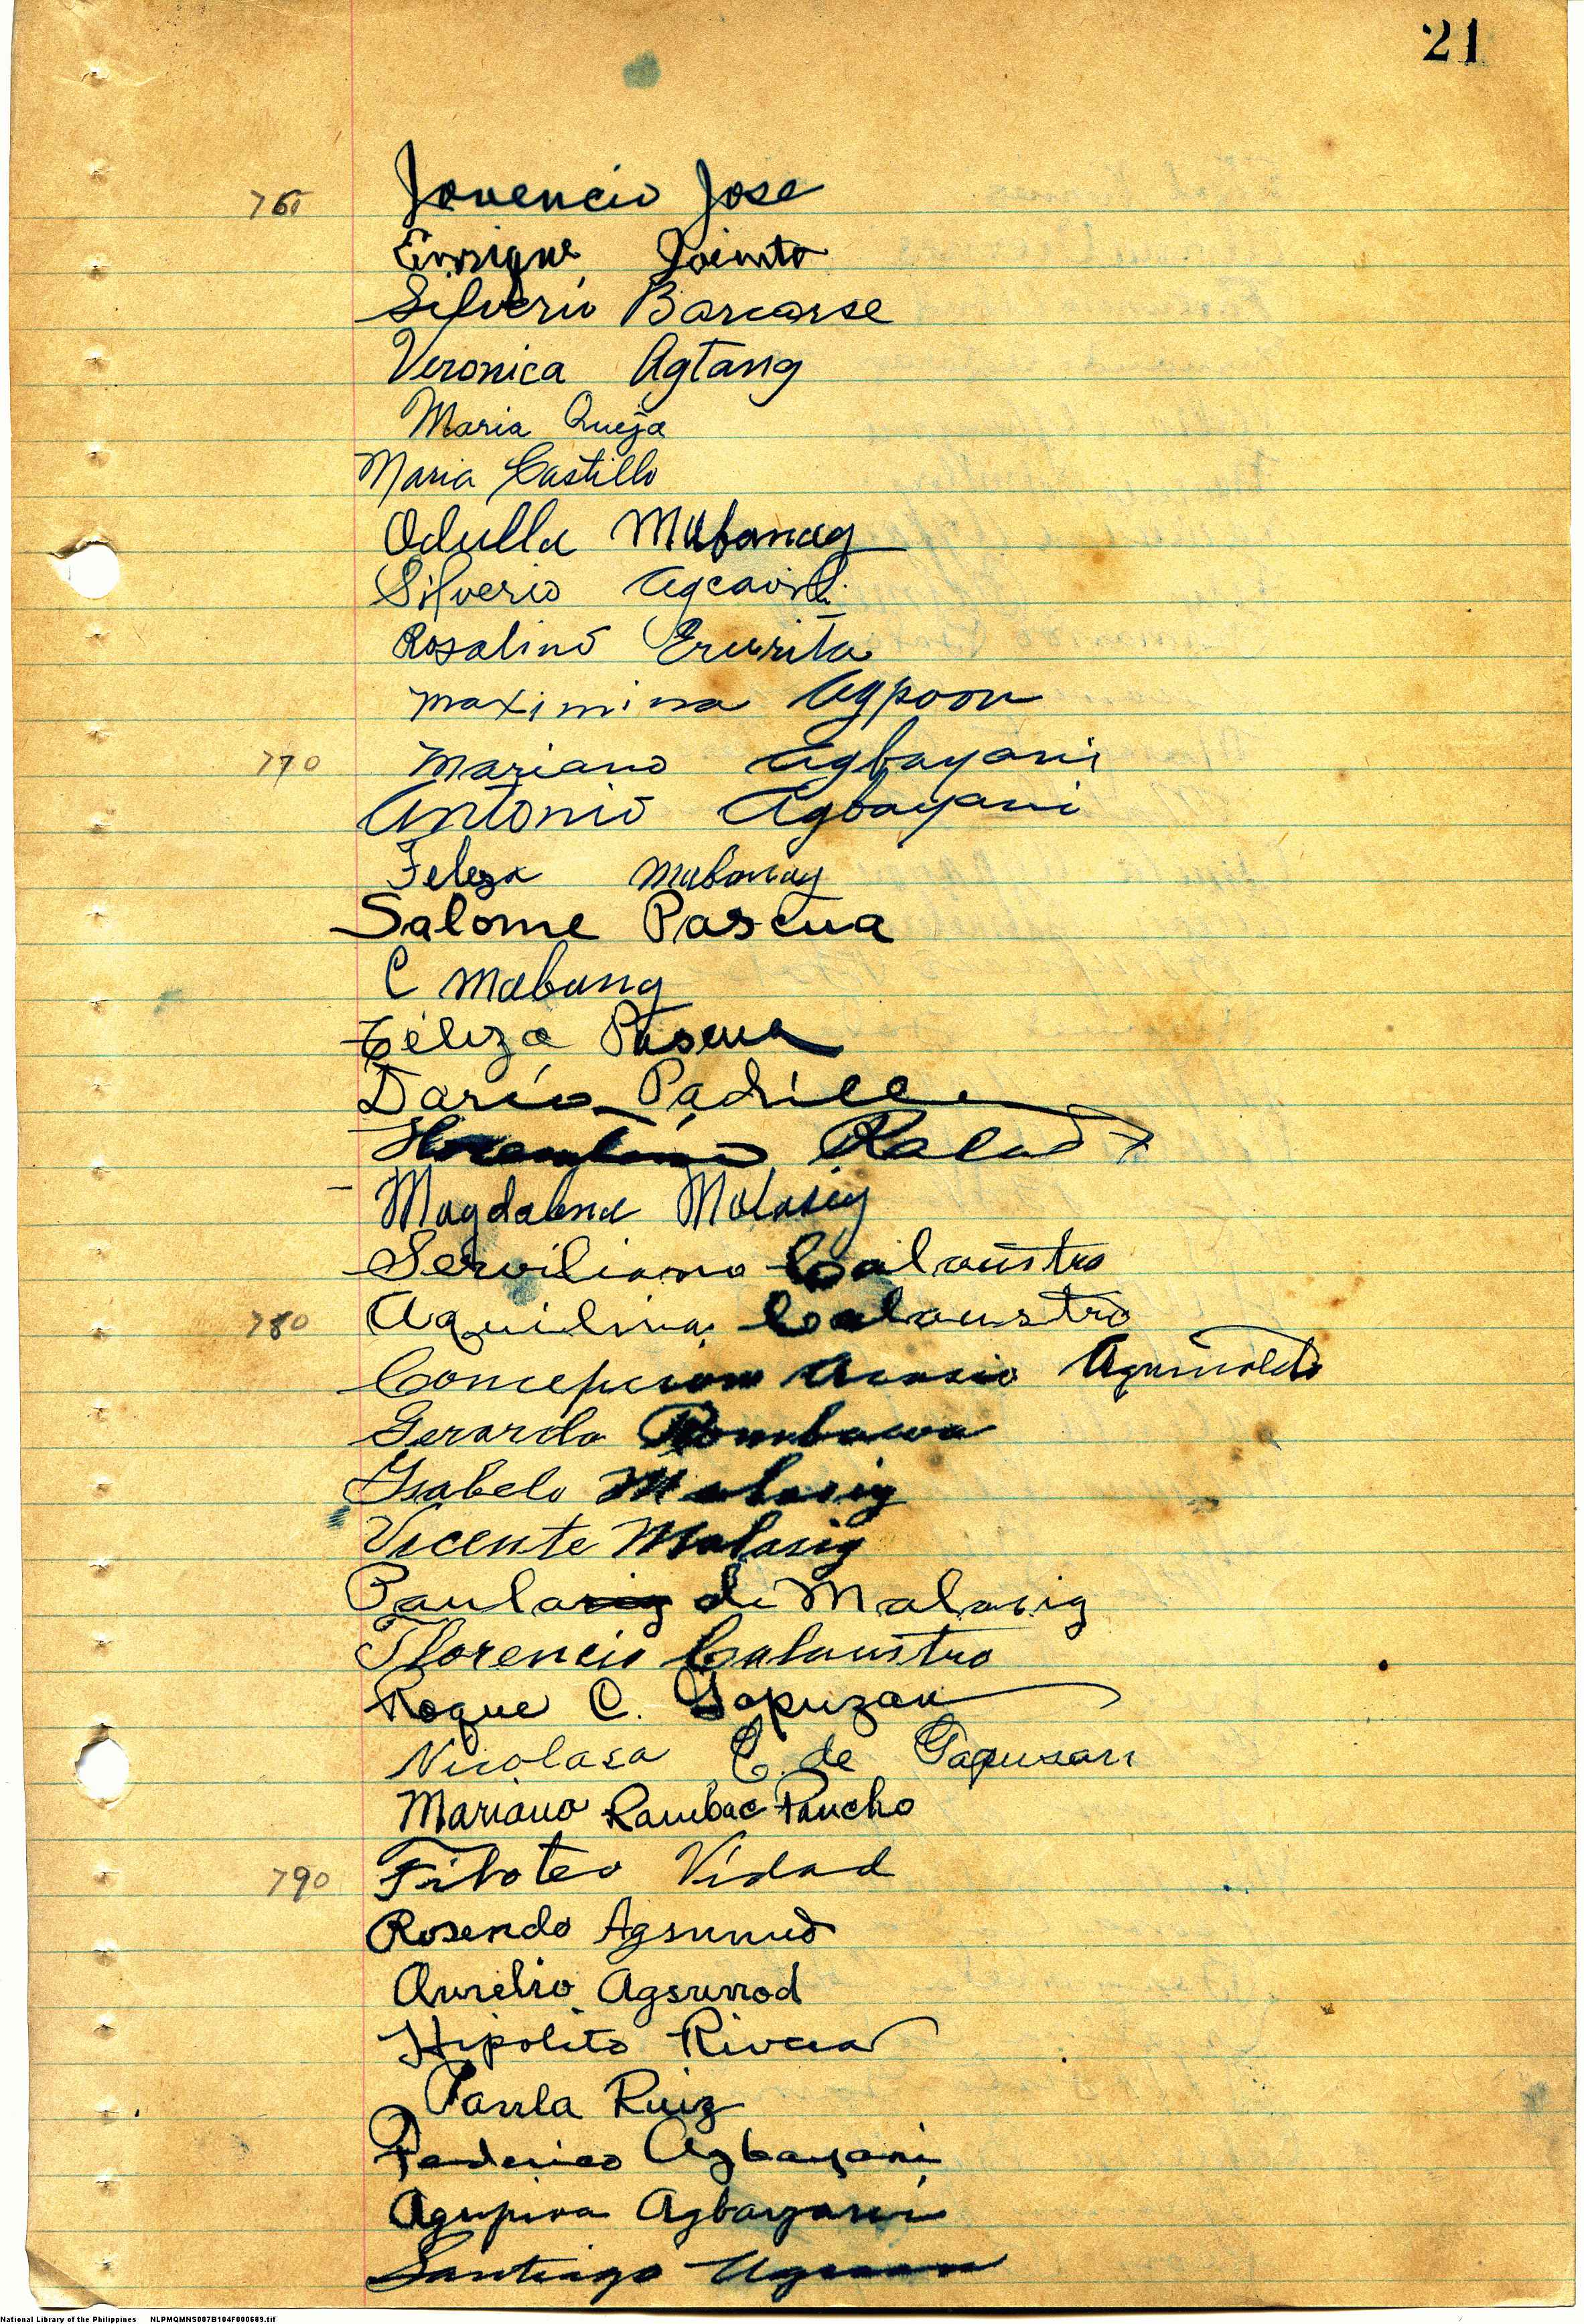 21
760 Jovencio Jose
Enrique Jacinto
Silverio Barcarse
Veronica Agtang
Maria Queja
Maria Castillo
Odulla Mabanag
Silverio Agcaoili
Rosalino
Maximina Agpoon
770 Mariano Agbayani
Antonio Agbayani
Feliza Mabanag
Salome Pascua
C Mabang
Feliza Pascua
Dario Padilla
Ralad
Magdalena Malasig
Serviliano Calaustro
780 Aquilina Calaustro
Concepcion Acosio Aguinaldo
Gerardo Rombawa
Ysabelo Malasig
Vicente Malasig
Paula de Malasig
Florencio Calaustro
Roque C. Gapuzan
Nicolasa C. de Gapusan
Mariano Rambac Pancho
790 Filoteo Vidad
Rosendo Agsunod
Aurelio Agsunod
Hipolito Rivera
Paula Ruiz
Federico Agbayani
Agripina Agbayani
Santiago
National Library of the Philippines NLPMQMNS007B104F000689.tif